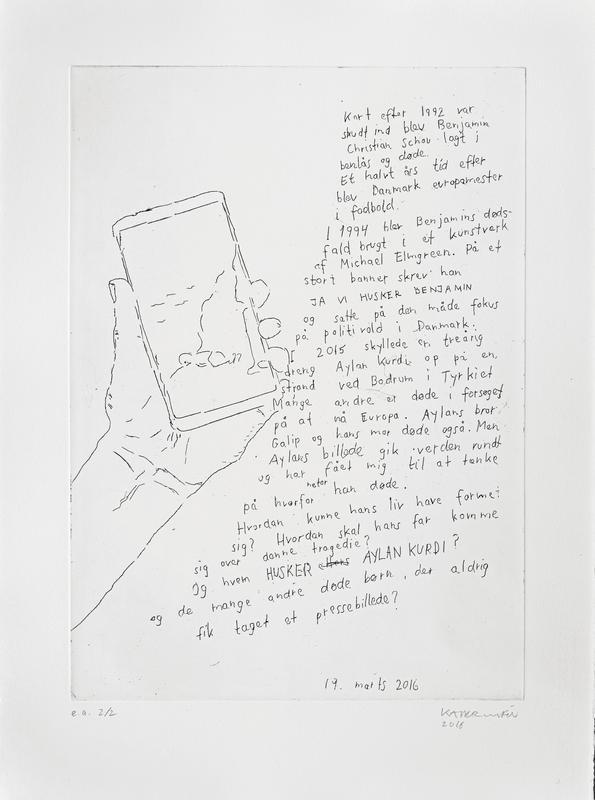 Kort efter 1992 var
skudt ind blev Benjamin
Christian Schou lagt i
benlås og døde.
Et halvt års tid efter
blev Danmark europamester
i fodbold.
I 1994 blev Benjamins døds-
fald brugt i et kunstværk
af Michael Elmgreen. På et
stort banner skrev han
JA VI HUSKER BENJAMIN
og satte på den måde fokus
på politivold i Danmark.
I 2015 skyllede en treårig
dreng Aylan Kurdi op på en
strand ved Bodrum i Tyrkiet
Mange andre er døde i forsøget
på at nå Europa. Aylans bror
Galip og hans mor døde også. Men
Aylans billede gik verden rundt
og har fået mig til at tænke
på hvorfor netop han døde.
Hvordan kunne hans liv have formet
sig? Hvordan skal hans far komme
sig over denne tragedie?
Og hvem HUSKER AYLAN KURDI?
og de mange andre døde børn, der aldrig
fik taget et pressebillede?
19. marts 2016
e.a. 2/2
2016